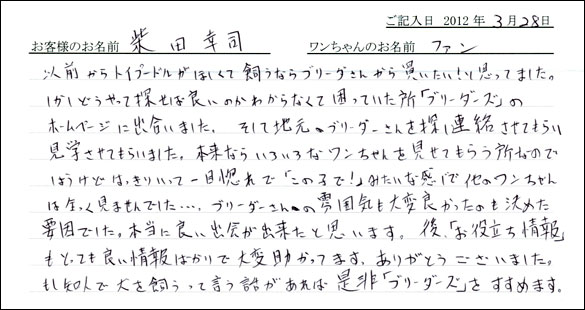 ご記入日 2012 年 3 月 28 日
お客様のお名前 柴田幸司 ワンちゃんのお名前 ファン
以前からトイプードルがほしくて飼うならブリーダさんから買いたい!と思ってました。
しかしどうやって探せば良いのかわからなくて困っていた所「ブリーダーズ」の
ホームページに出合いました。そして地元のブリーダーさんを探し連絡させてもらい
見学させてもらいました。本来ならいろいろなワンちゃんを見せてもらう所なので
しょうけどはっきりいって一目惚れで「この子で!」みたいな感じで他のワンちゃん
は全っく見ませんでした…。ブリーダーさんの雰囲気も大変良かったのも決めた
要因でした。本当に良い出会が出来たと思います。後、「お役立ち情報」
もとっても良い情報ばかりで大変助かってます。ありがとうございました。
もし知人で犬を飼うって言う話があれば是非「ブリーダーズ」をすすめます。